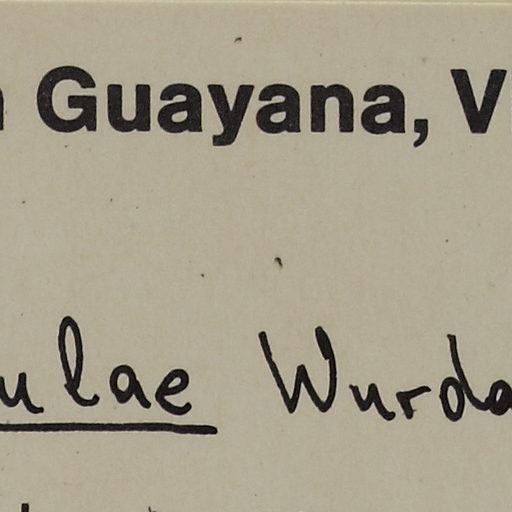 Guayana, V
ulae Wurda